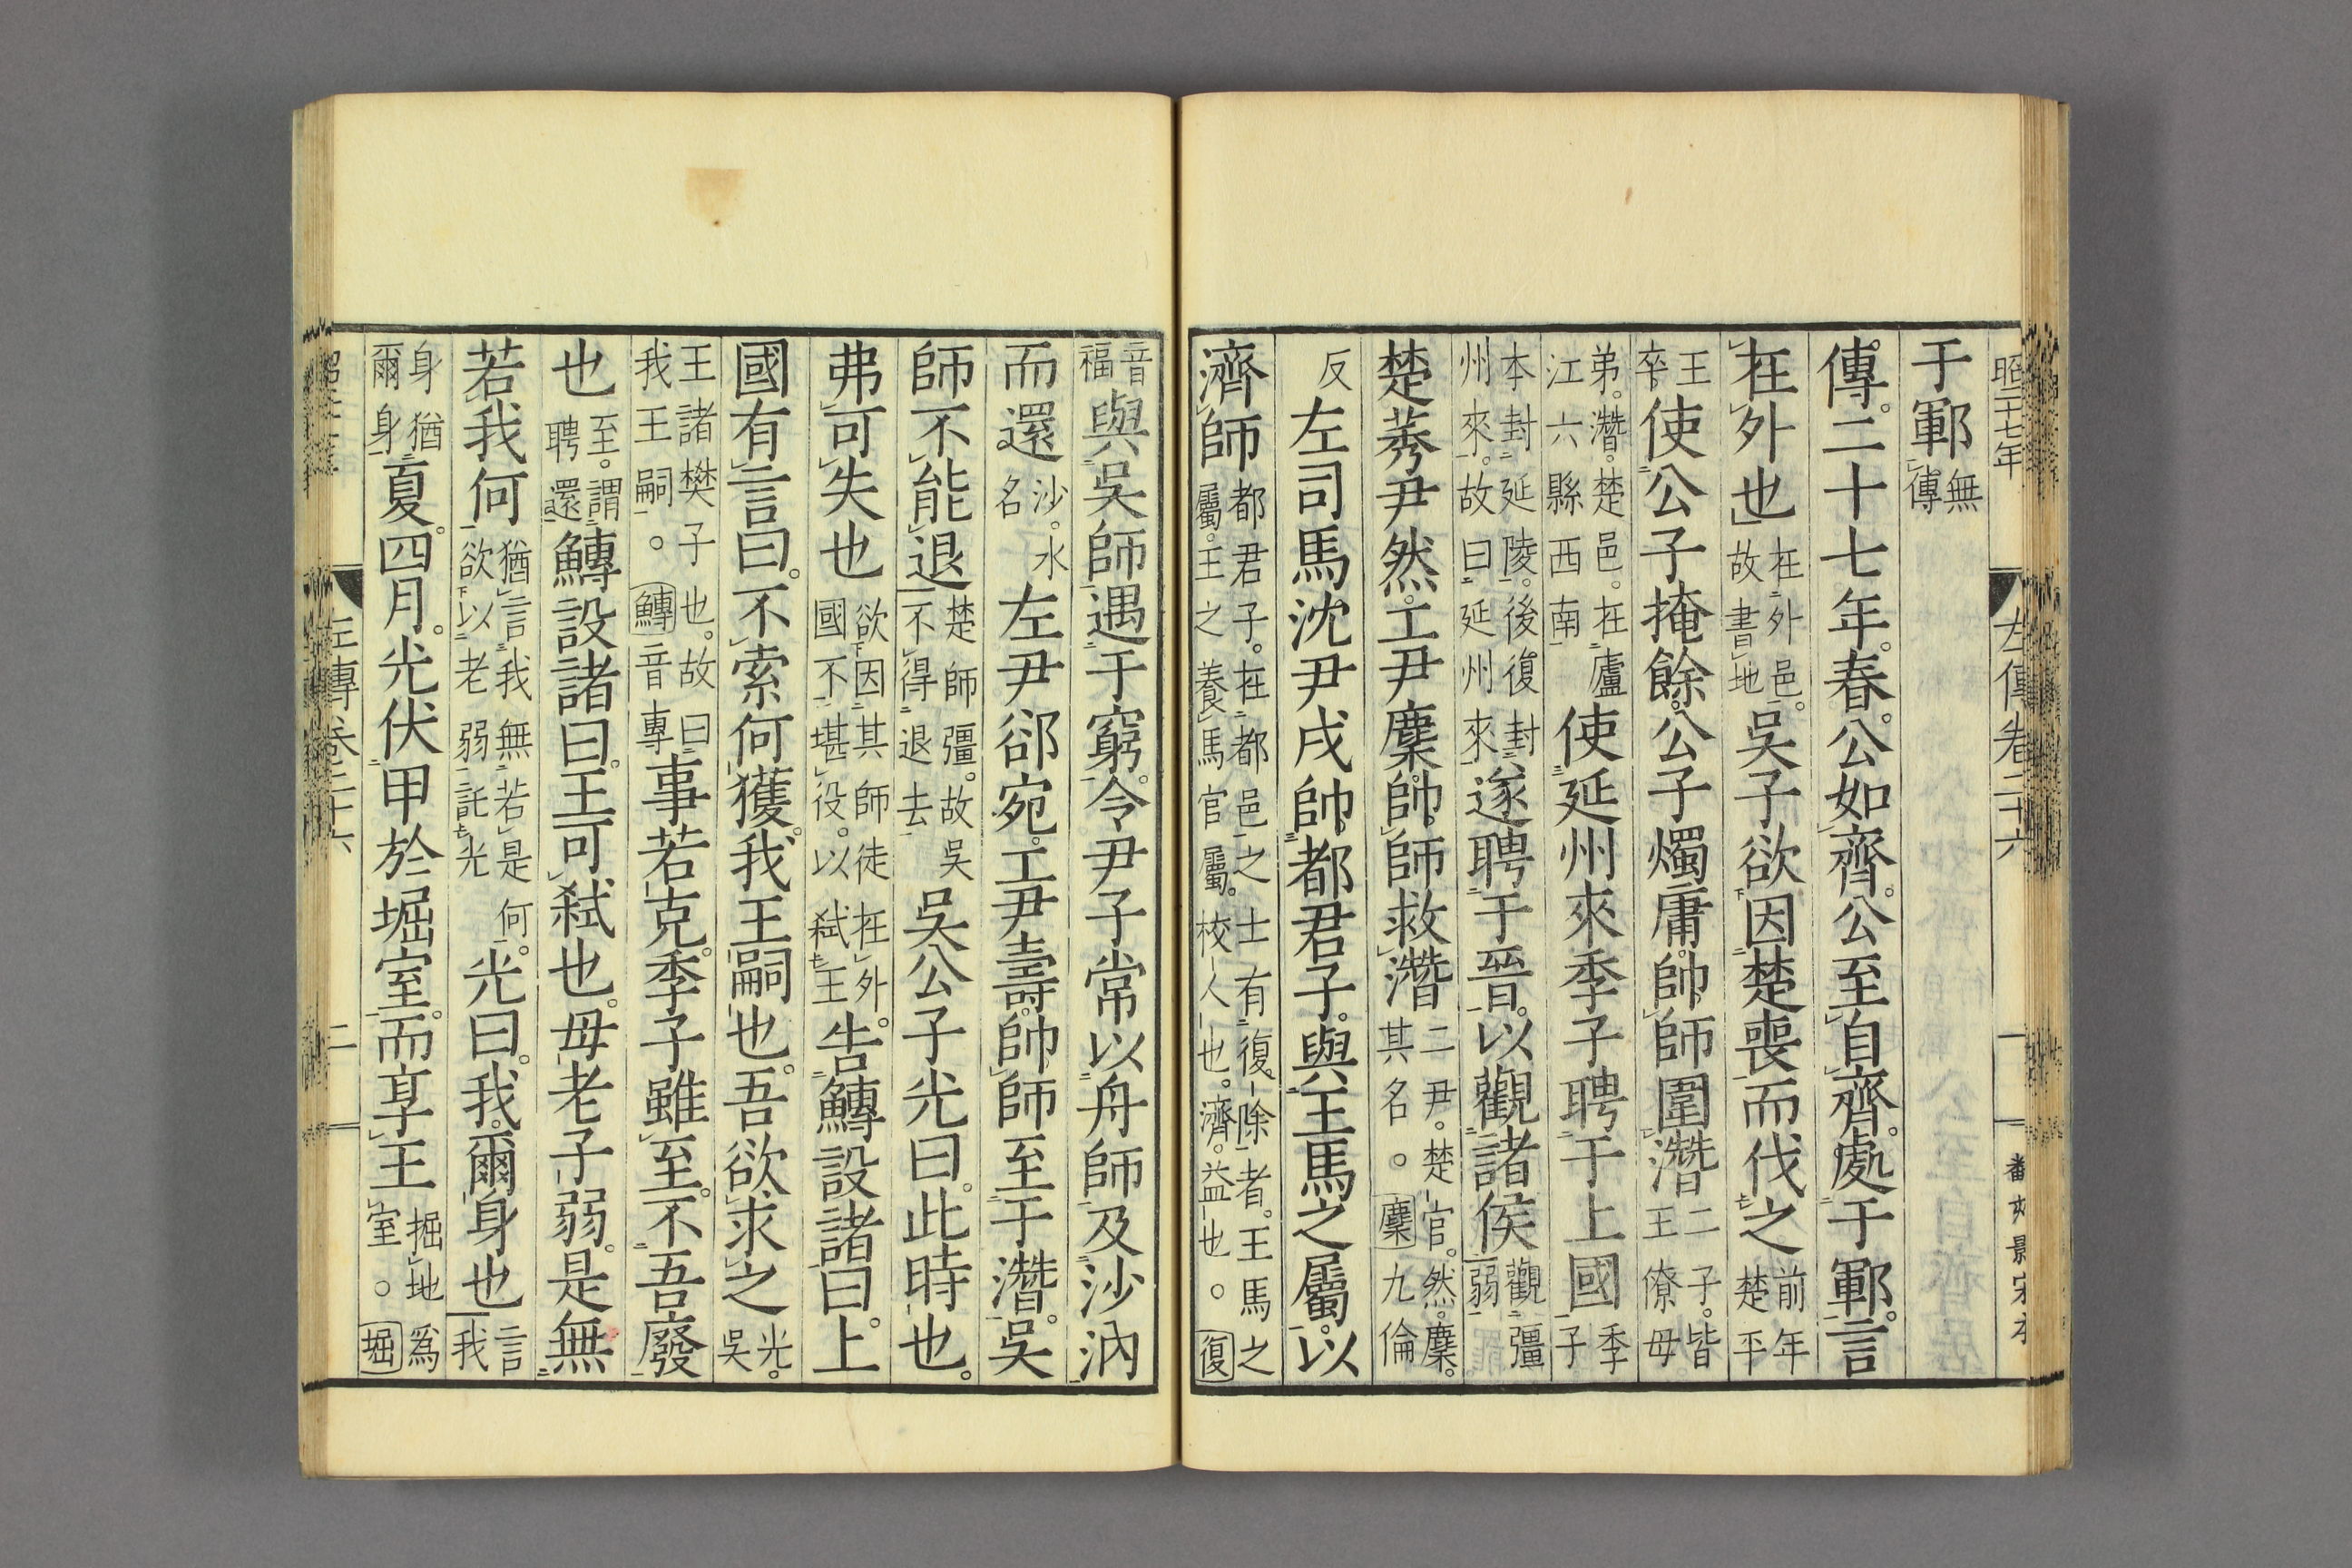 昭二十七年　左傳卷二十六　一　影宋本
于鄆無傳
傳。二十七年。春。公如齊。公至自齊。處于鄆。言
在外也在外邑。故書地吳子欲因楚喪而伐之前年楚平
王卒使公子掩餘。公子燭庸。帥師圍潛二子。皆王僚母
弟。潛。楚邑。在廬江六縣西南使延州來季子聘于上國季子
本封延陵。後復封州來。故曰延州來遂聘于晉。以觀諸侯觀彊弱
楚莠尹然。工尹麇。帥師救潛二尹。楚官。然。麇。其名。○麇九倫
反左司馬沈尹戌帥都君子。與王馬之屬。以
濟師都君子。在都邑之士有復除者。王馬之屬。王之養馬官屬。校人也。濟。益也。○復
音福與吳師遇于窮。令尹子常以舟師及沙汭
而還沙。水名左尹郤宛。工尹壽。帥師至于潛。吳
師不能退楚師彊。故吳不得退去吳公子光曰。此時也。
弗可失也欲因其師徒在外。國不堪役。以弒王告鱄設諸曰。上
國有言曰。不索何獲。我王嗣也。吾欲求之光。吳
王諸樊子也。故曰我王嗣。○鱄音專事若克。季子雖至。不吾廢
也至。謂聘還鱄設諸曰。王可弒也。母老子弱。是無
若我何猶言我無若是何。欲以老弱託光光曰。我。爾身也言我
身猶爾身夏。四月。光伏甲於堀室。而享王掘地爲室。○堀
左傳卷二十六　二